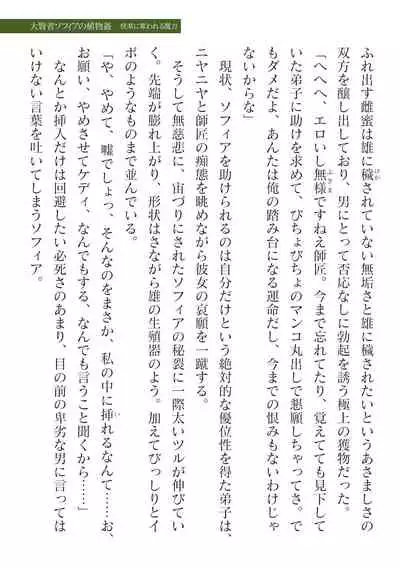 大賢者ソフィアの植物姦　快楽に奪われる魔力
ふれ出す雌蜜は雄に穢されていない無垢さと雄に穢されたいというあさましさの
双方を醸し出しており、男にとって否応なしに勃起を誘う極上の獲物だった。
「へへへ、エロいし無様ですねえ師匠。今まで忘れてたり、覚えてても見下して
いた弟子に助けを求めて、びちょびちょのマンコ丸出しで懇願しちゃってさ。で
もダメだよ、あんたは俺の踏み台になる運命だし、今までの恨みもないわけじゃ
ないからな」
現状、ソフィアを助けられるのは自分だけという絶対的な優位性を得た弟子は、
ニヤニヤと師匠の痴態を眺めながら彼女の哀願を一蹴する。
そうして無慈悲に、宙づりにされたソフィアの秘裂に一際太いツルが伸びてい
く。先端が膨れ上がり、形状はさながら雄の生殖器のよう。加えてびっしりとイ
ボのようなものまで並んでいる。
「や、やめて、嘘でしょっ、そんなのをまさか、私の中に挿れるなんて……お、
お願い、やめさせてケディ、なんでもする、なんでも言うこと聞くから……」
なんとか挿入だけは回避したい必死さのあまり、目の前の卑劣な男に言っては
いけない言葉を吐いてしまうソフィア。